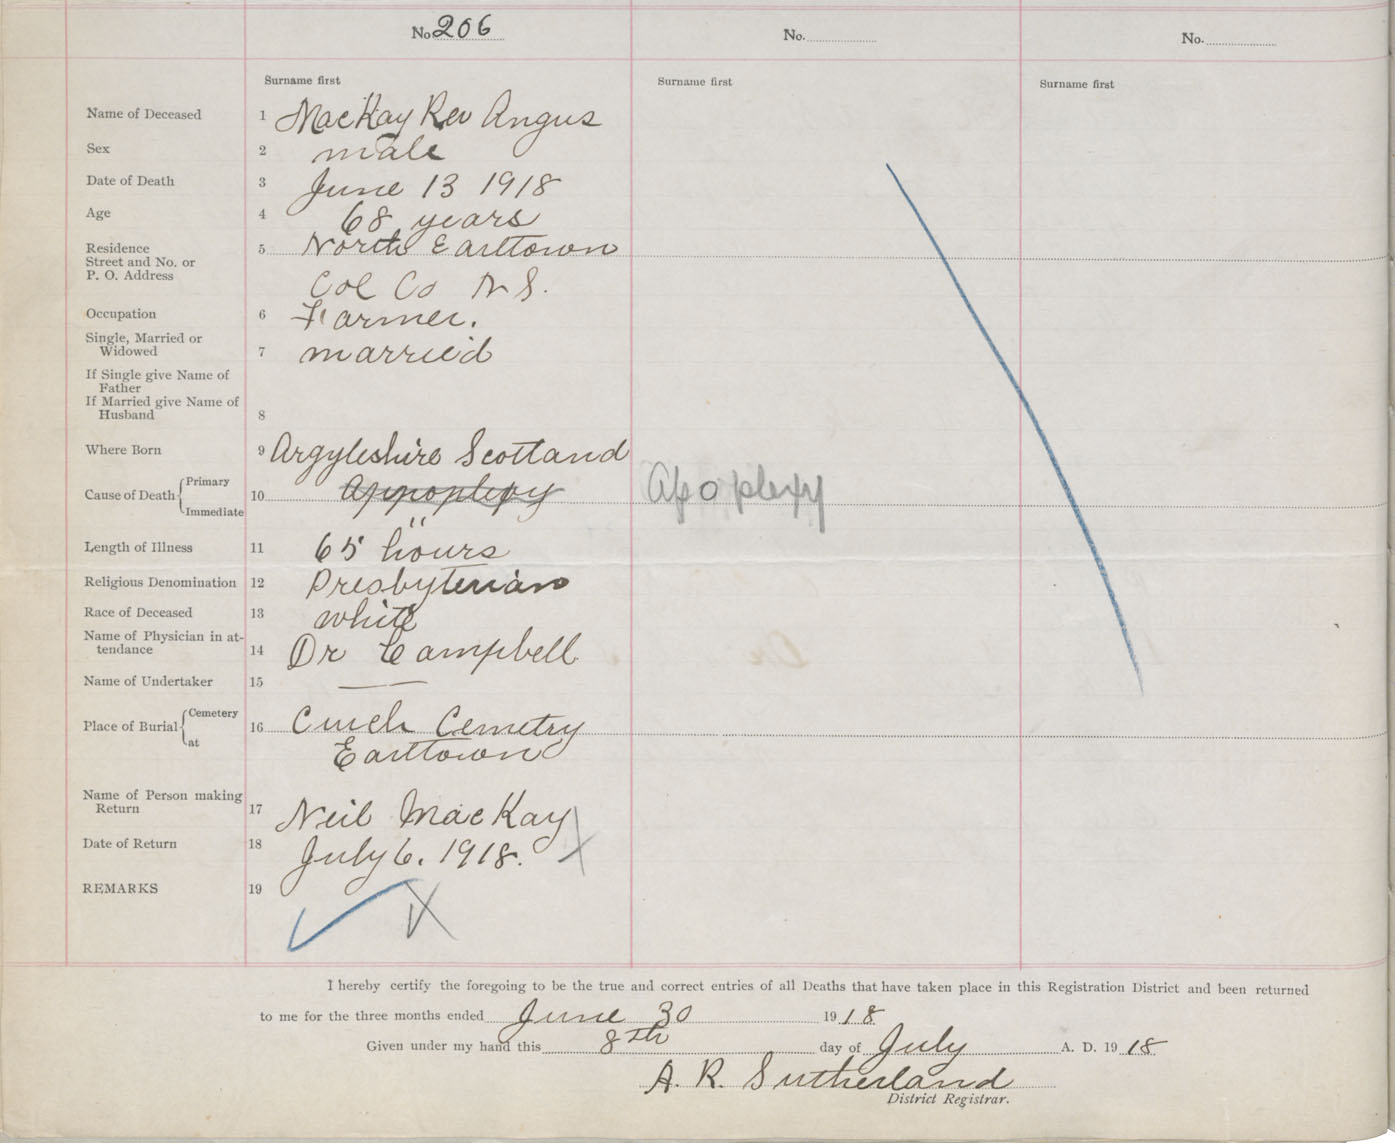 No. 206 No. No.
Surname first Surname first Surname first
Name of Deceased 1 MacKay Rev Angus
Sex 2 male
Date of Death 3 June 13 1918
Age 4 68 years
Residence 5 North Earltown
Street and No. or
P. O. Address Col Co N S.
Occupation 6 Farmer.
Single, Married or
Widowed 7 married
If Single give Name of
Father
If Married give Name of
Husband 8
Where Born 9 Argyleshire Scotland
Primary
Cause of Death 10 Appoplexy Apoplexy
Immediate "
Length of Illness 11 65 hours
Religious Denomination 12 Presbyterian
Race of Deceased 13 white
Name of Physician in at-
tendance 14 Dr Campbell
Name of Undertaker 15 —
Cemetery
Place of Burial 16 Cemetry
at Earltown
Name of Person making
Return 17 Neil MacKay
Date of Return 18 July 6. 1918.
REMARKS 19
I hereby certify the foregoing to be the true and correct entries of all Deaths that have taken place in this Registration District and been returned
to me for the three months ended June 30 1918
Given under my hand this 8th day of July A. D. 1918
A. R. Sutherland
District Registrar.